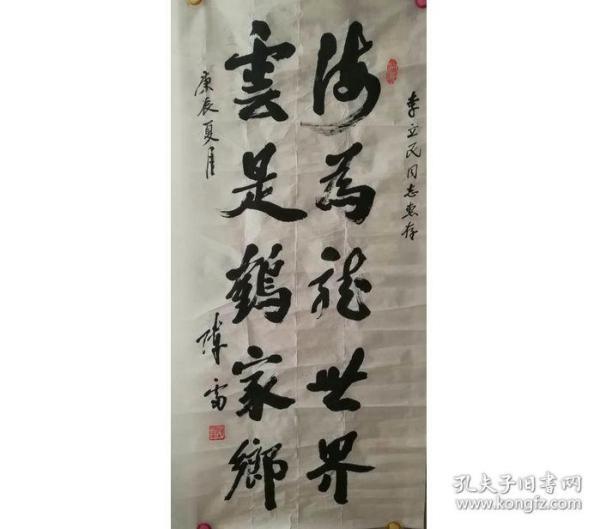 李立民同志惠存
海为龙世界
雲是鹤家鄉
庚辰夏月
陳雷
孔夫子旧书网
kongfz.com